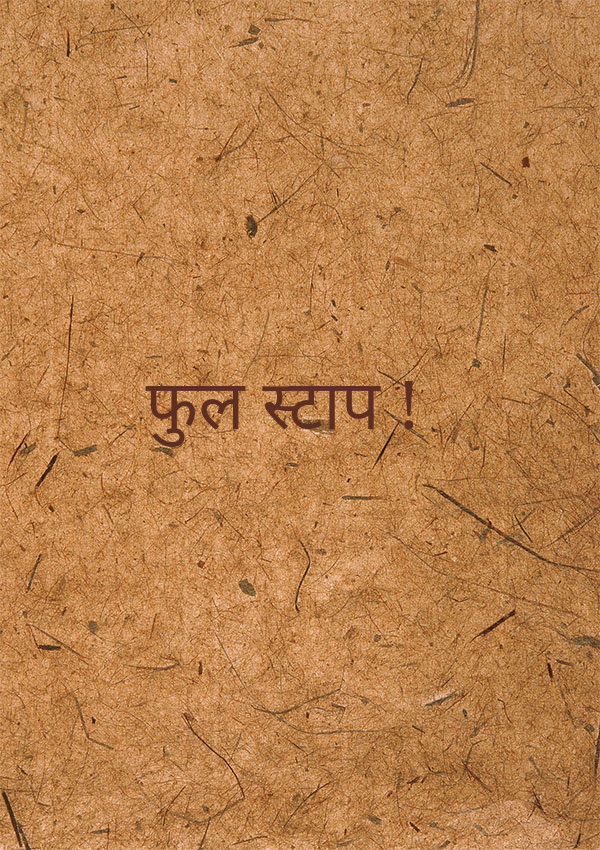 फुल स्टाप !